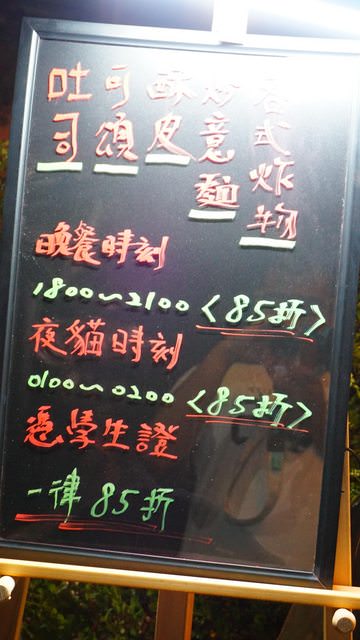 各式炸物
炒意麵
酥皮
可頌
吐司
晚餐時刻
1800~2100〈85折〉
夜貓時刻
0100~0200〈85折〉
憑學生證
一律85折